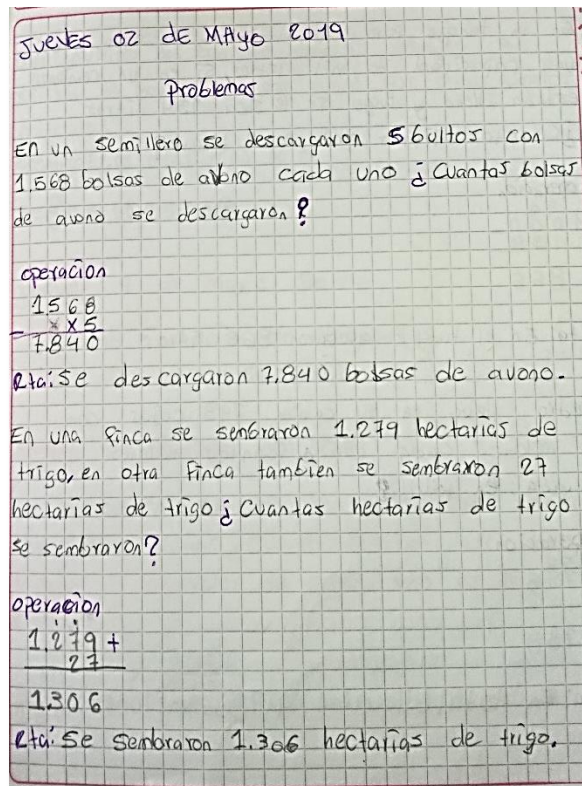 Jueves 02 de Mayo 2019
Problemas
En un semillero se descargaron 5 bultos con
1.568 bolsas de abono cada uno ¿Cuantas bolsas
de avono se descargaron?
operacion
1568
x5
7.840
Rta: Se descargaron 7.840 bolsas de avono.
En una finca se senbraron 1.279 hectarias de
trigo, en otra finca tambien se sembraron 27
hectarias de trigo ¿Cuantas hectarias de trigo
se sembraron?
operacion
1.279 +
27
1.306
Rta: Se sembraron 1.306 hectarias de trigo.